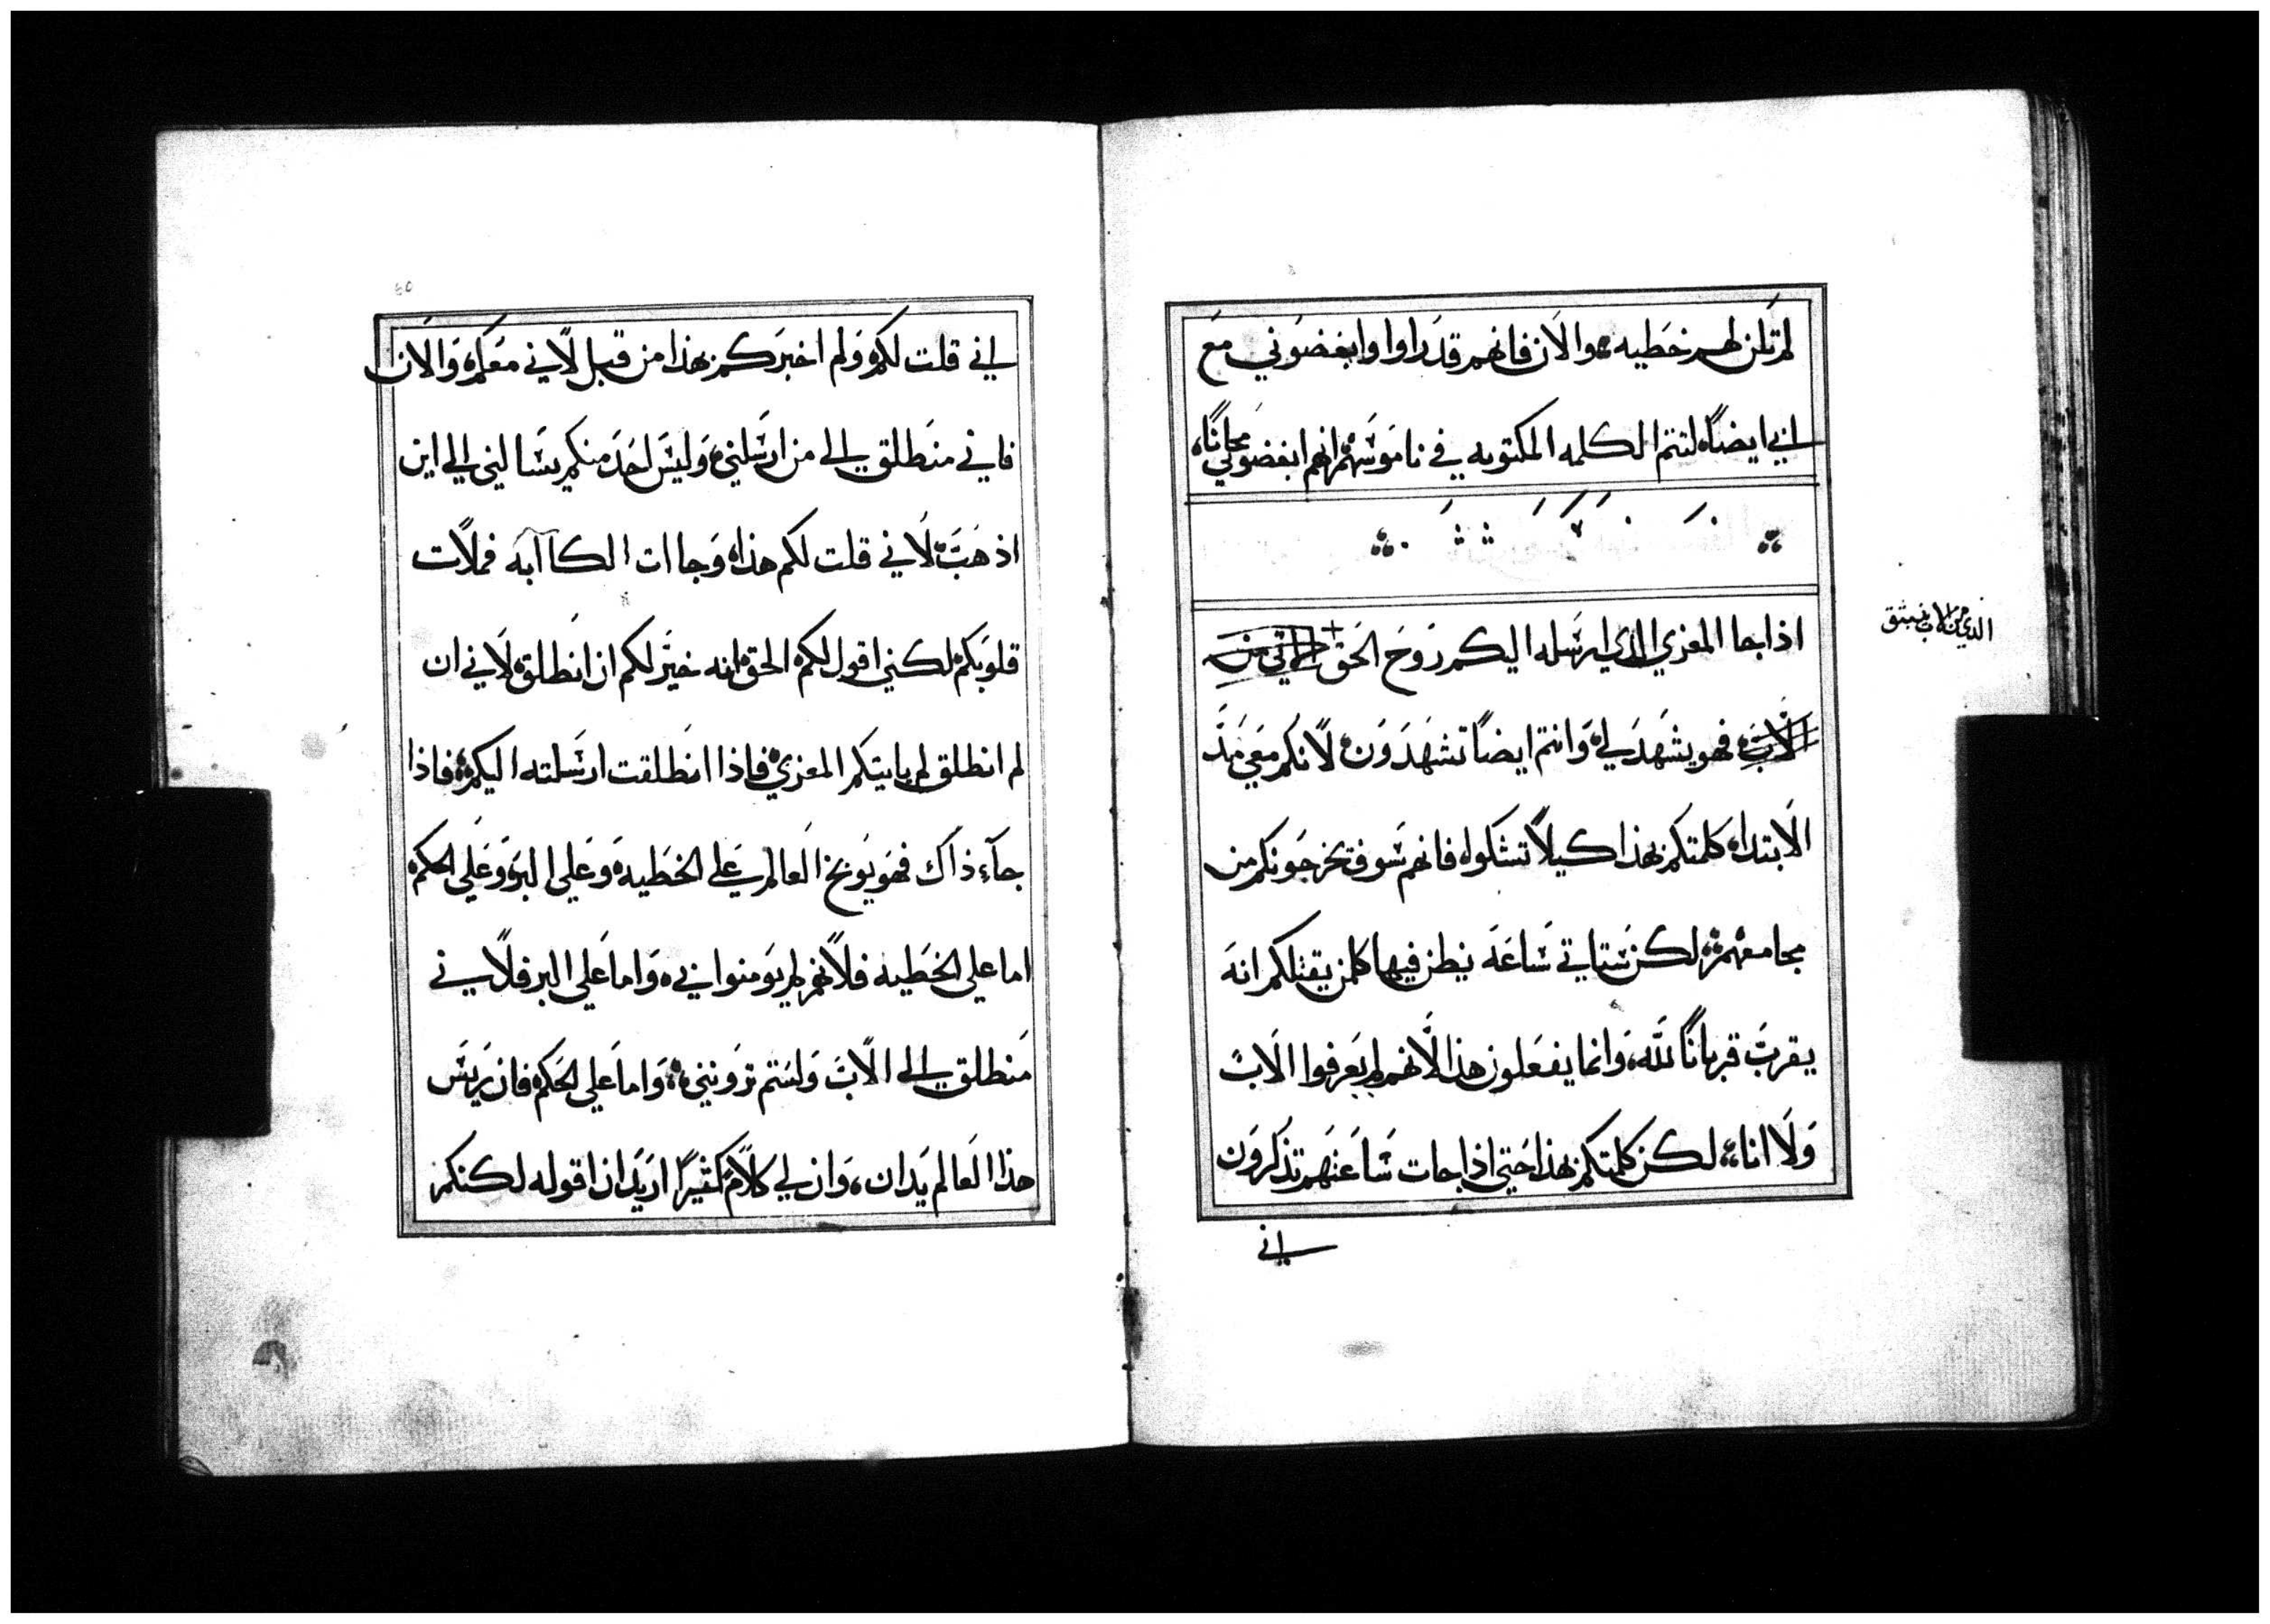 لم تكن لهم خطيه والان فانهم قد راوا وابغضوني مع
ابي ايضاً لتتم الكلمه المكتوبه في ناموسهم انهم ابغضوني مجاناً
اذا جا المعزي الذي ارسله اليكم روح الحق
الذي من الاب ينبثق
الاب فهو يشهد لي وانتم ايضاً تشهدون لانكم معي مذ
الابتدا كلمتكم بهذا كيلا تشكوا فانهم سوف يخرجونكم من
مجامعهم لكن ستاتي ساعة يظن فيها كلمن يقتلكم انه
يقرب قرباناً لله وانما يفعلون هذا لانهم لم يعرفوا الاب
ولا انا لكن كلمتكم بهذا حتي اذا جات ساعتهم تذكرون
اني
اني قلت لكم ولم اخبركم بهذا من قبل لاني معكم والان
فاني منطلق الي من ارسلني وليس احد منكم يسالني الي اين
اذهب لاني قلت لكم هذا وجاات الكاابه فملات
قلوبكم لكني اقول لكم الحق انه خير لكم ان انطلق لاني ان
لم انطلق لم ياتيكم المعزي فاذا انطلقت ارسلته اليكم فاذا
جآء ذاك فهو يوبخ العالم علي الخطيه وعلي البر وعلي الحكم
اما علي الخطيه فلانهم لم يومنوا بي واما علي البر فلاني
منطلق الي الاب ولستم تروني واما علي الحكم فان ريس
هذا العالم يدان وان لي كلام كثيراً اريد ان اقوله لكنكم